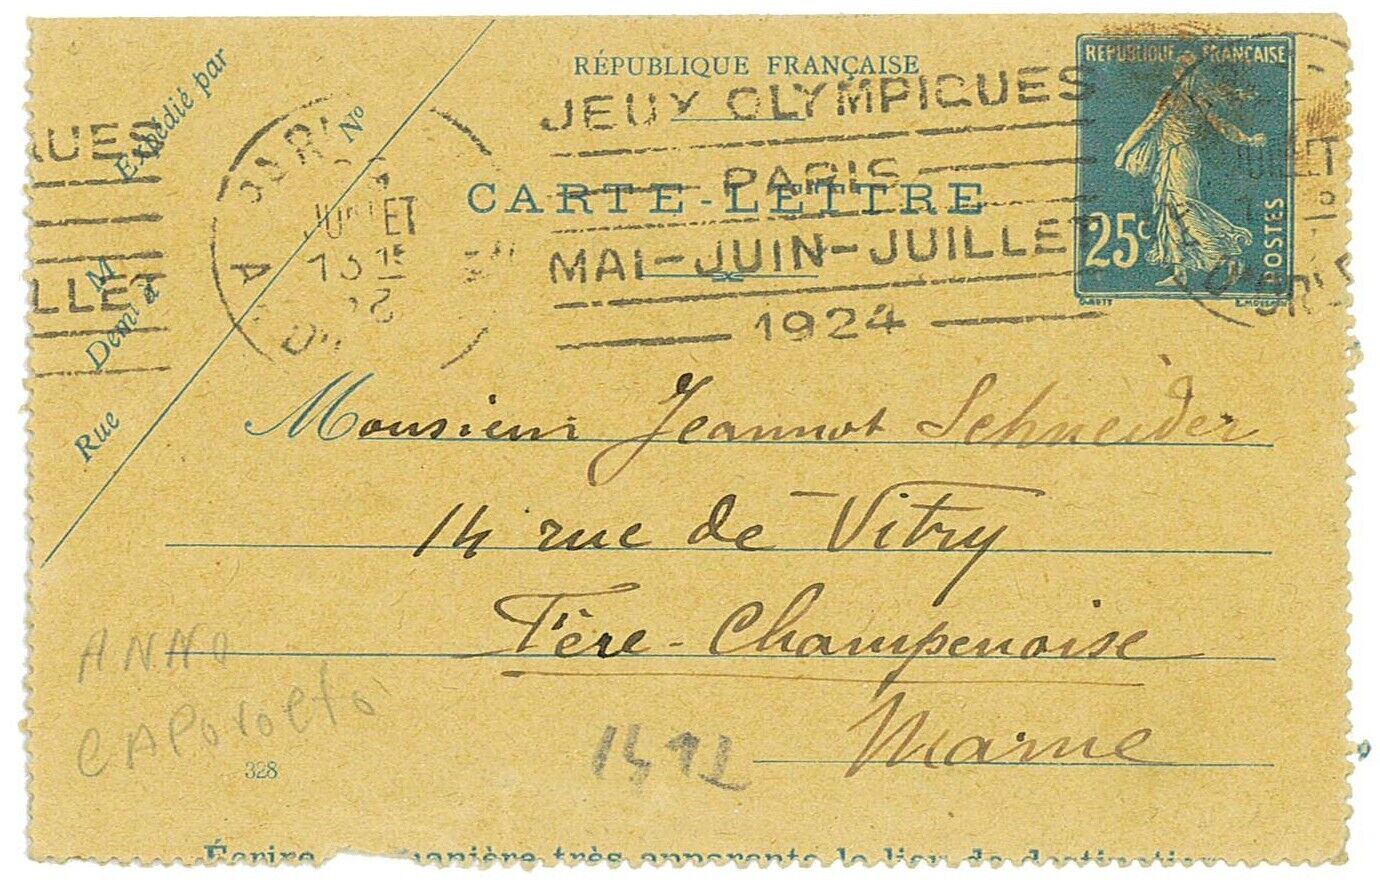 RÉPUBLIQUE FRANÇAISE
CARTE-LETTRE
Expédié par
Nº
M
Demt à
Rue
JEUX OLYMPIQUES
PARIS
MAI-JUIN-JUILLET
1924
QUES
ILLET
PARIS
JUILLET
REPUBLIQUE FRANÇAISE
25c
POSTES
O.ROTY
JUILLET
Monsieur Jeannot Schneider
14 rue de Vitry
Fère-Champenoise
Marne
ANNO
328
Écrire manière très apparente le lieu de destination